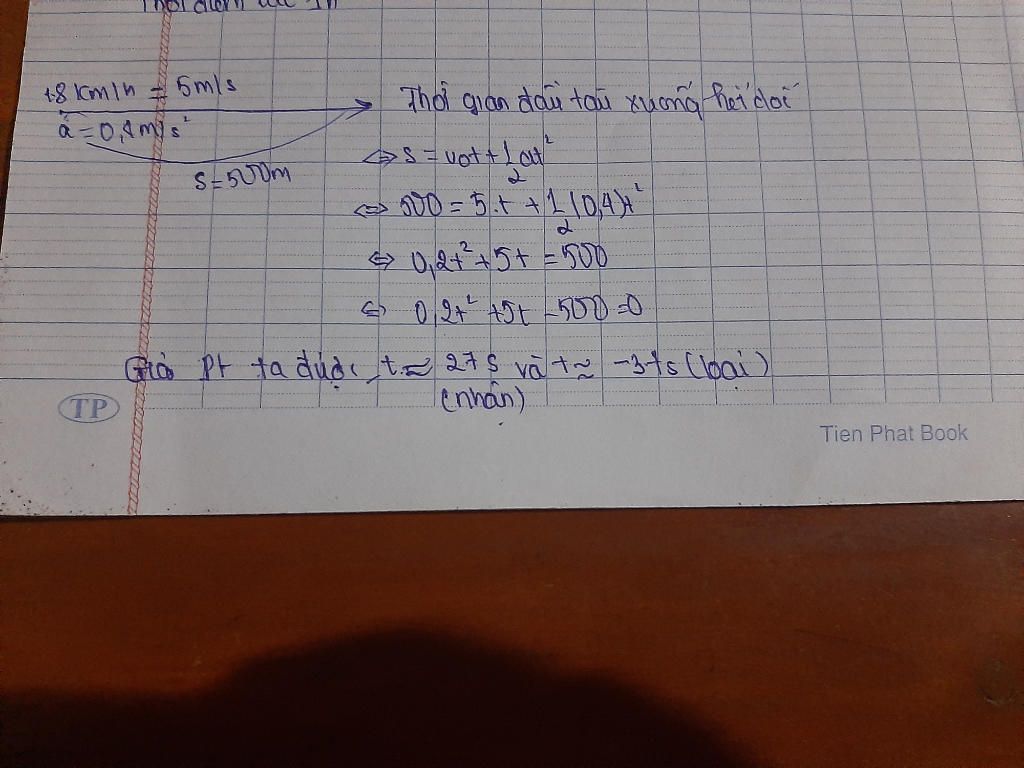 18 km/h = 5m/s
a = 0,4m/s²
s = 500m
Thời gian đầu tàu xuống hết dốc
⇔ s = v₀t + 1/2 at²
⇔ 500 = 5.t + 1/2 (0,4)t²
⇔ 0,2t² + 5t = 500
⇔ 0,2t² + 5t - 500 = 0
Giải Pt ta được, t ≈ s và t ≈ s (loại)
(nhận)
TP
Tien Phat Book